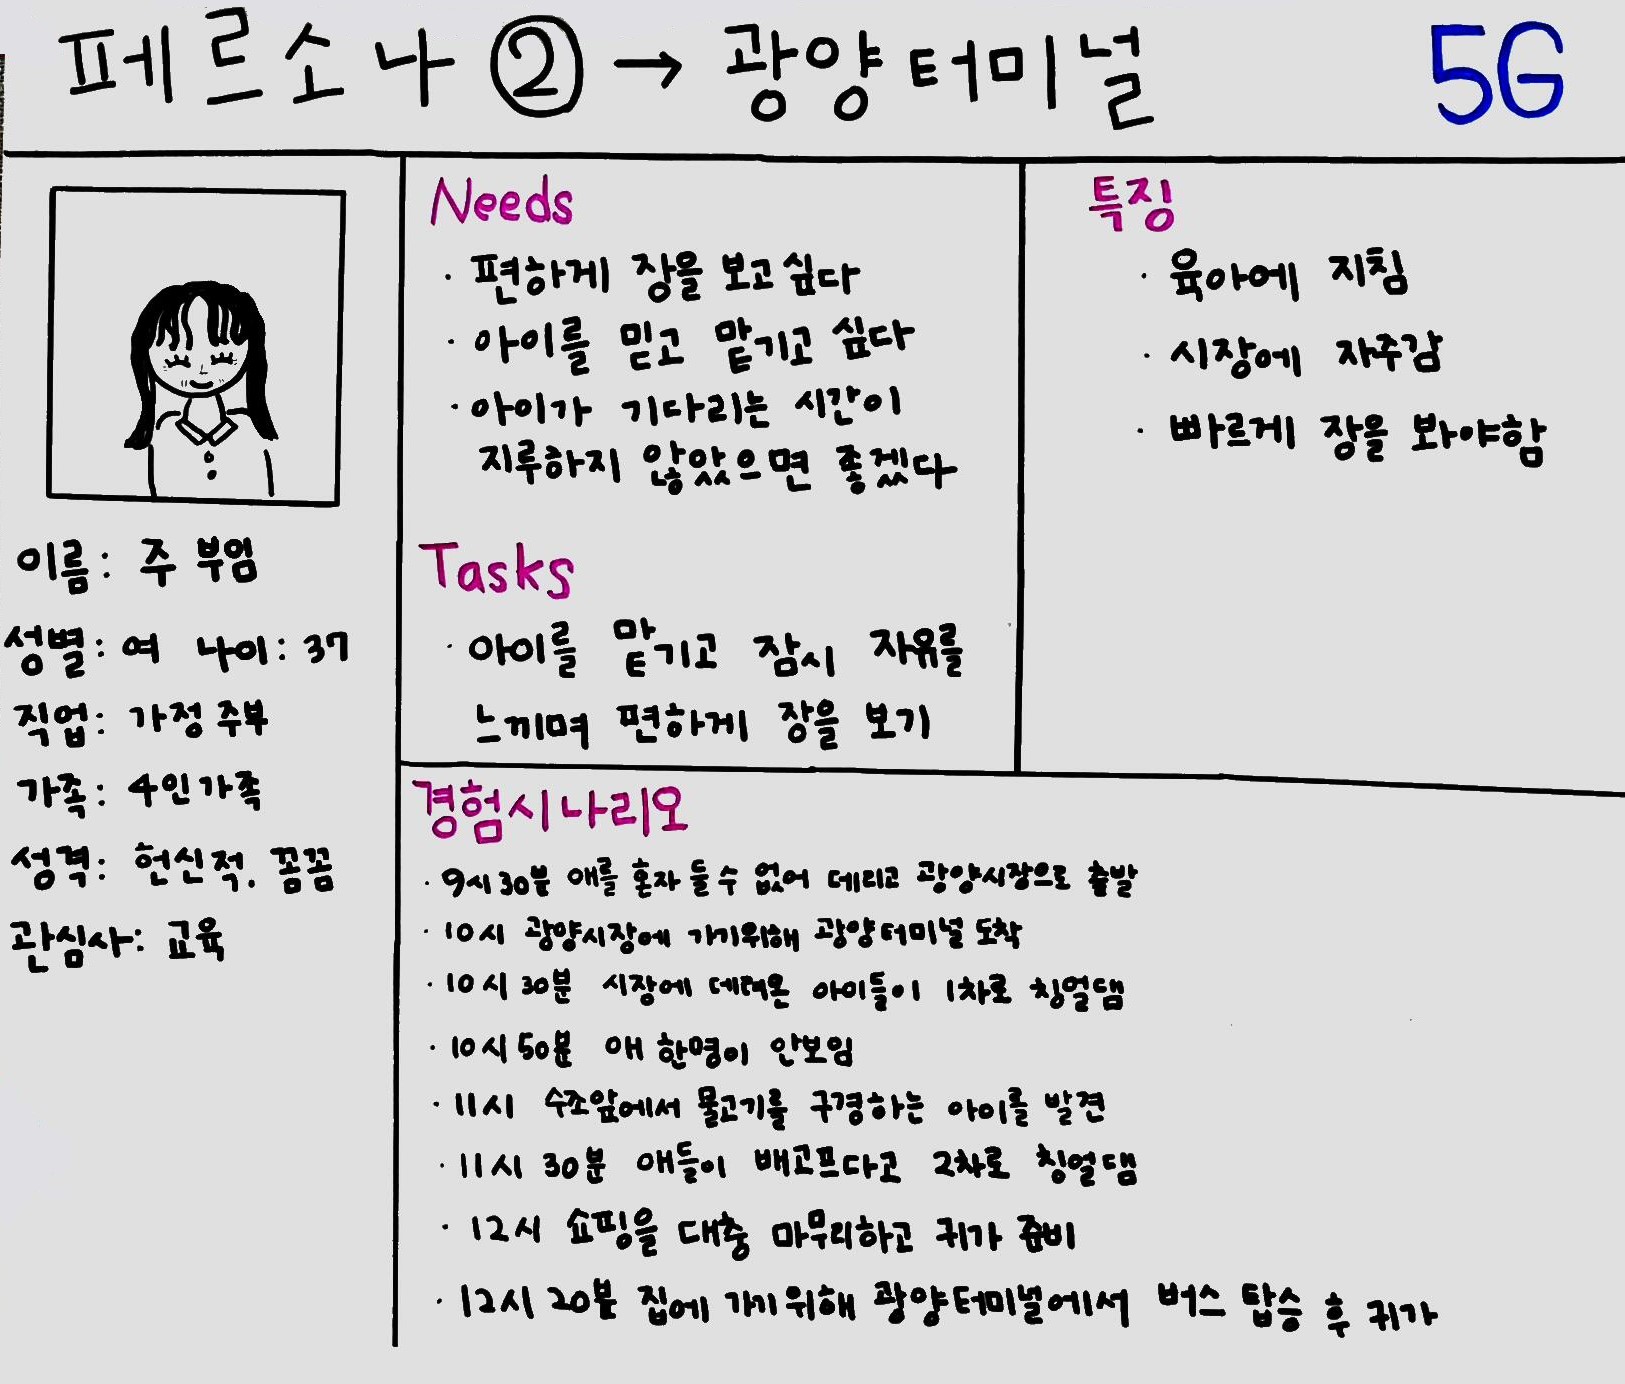 페르소나 ② → 광양터미널
5G
이름: 주 부임
성별: 여 나이: 37
직업: 가정주부
가족: 4인가족
성격: 헌신적, 꼼꼼
관심사: 교육
Needs
· 편하게 장을 보고싶다
· 아이를 믿고 맡기고 싶다
· 아이가 기다리는 시간이
지루하지 않았으면 좋겠다
Tasks
· 아이를 맡기고 잠시 자유를
느끼며 편하게 장을 보기
특징
· 육아에 지침
· 시장에 자주감
· 빠르게 장을 봐야함
경험시나리오
· 9시30분 애를 혼자 둘수 없어 데리고 광양시장으로 출발
· 10시 광양시장에 가기위해 광양터미널 도착
· 10시 30분 시장에 데려온 아이들이 1차로 칭얼댐
· 10시 50분 애 한명이 안보임
· 11시 수조앞에서 물고기를 구경하는 아이를 발견
· 11시 30분 애들이 배고프다고 2차로 칭얼댐
· 12시 쇼핑을 대충 마무리하고 귀가 준비
· 12시 20분 집에 가기위해 광양터미널에서 버스 탑승 후 귀가